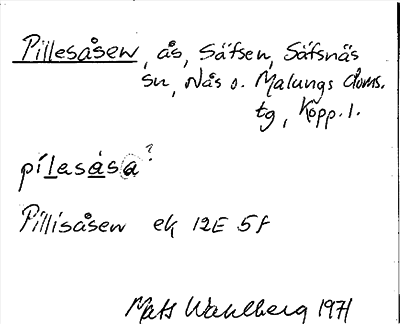 Pillesåsen, ås, Säfsen, Säfsnäs
sn, Nås o. Malungs doms.
tg, Kopp. l.
pílesåsa?
Pillisåsen ek 12E 5f
Mats Wahlberg 1971